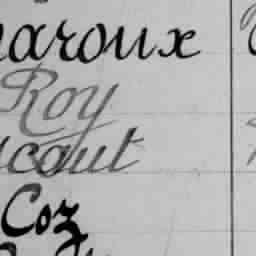 aroux
Roy
caut
Coz